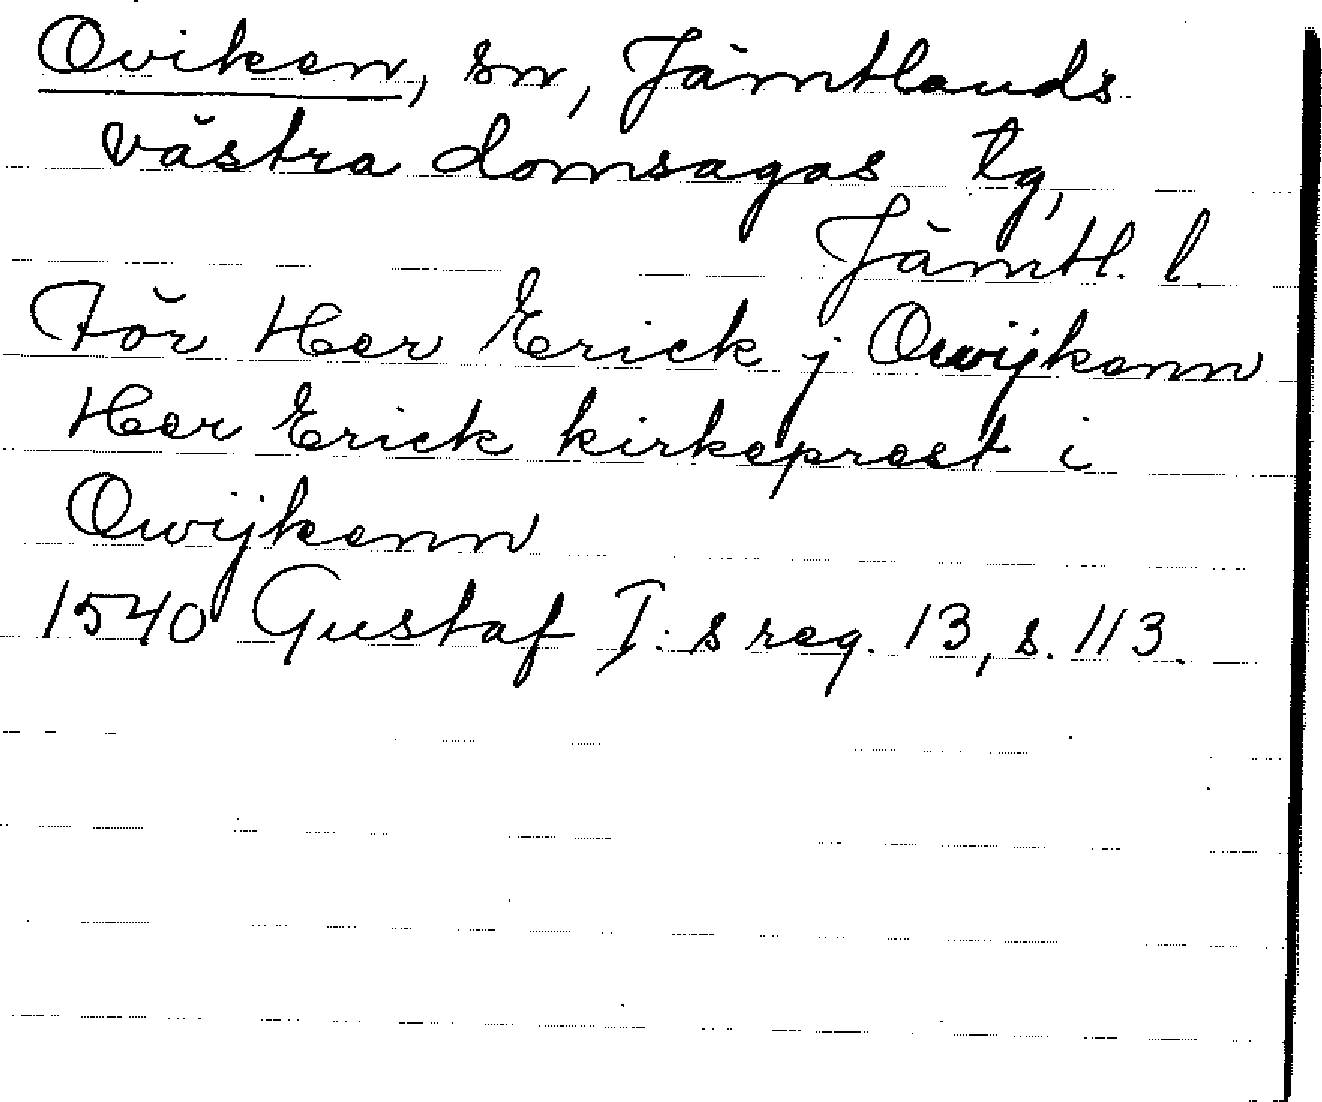 Oviken, sn, Jämtlands
västra domsagas tg,
Jämtl. l.
För Her Erick j Owijkenn
Her Erick kirkepreest i
Owijkenn
1540 Gustaf I:s reg. 13, s. 113.